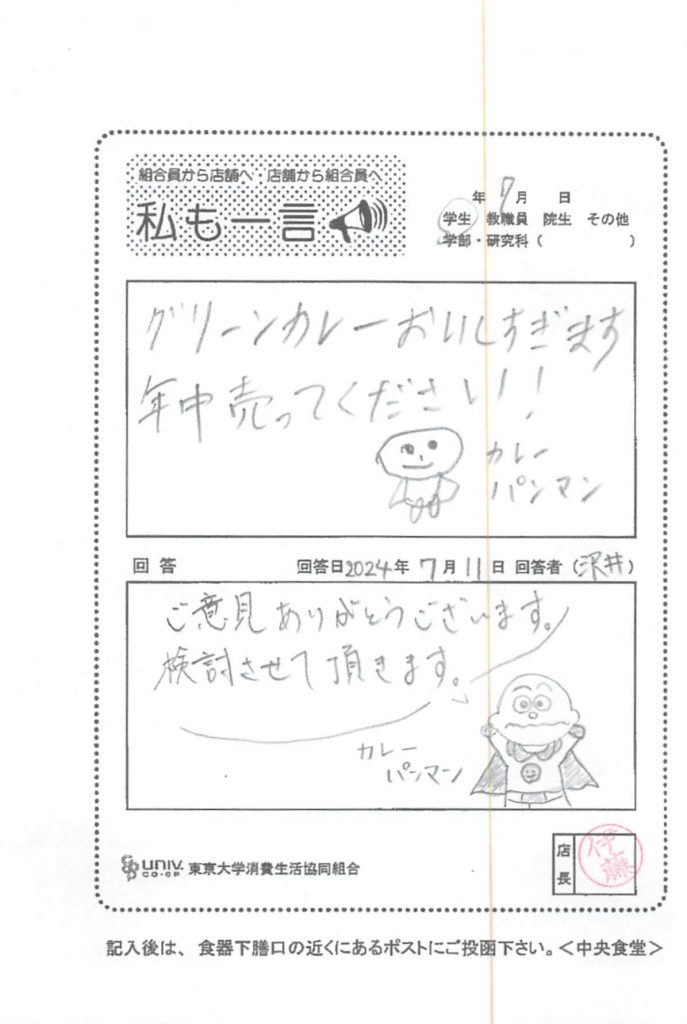 組合員から店舗へ・店舗から組合員へ
私も一言
年 7月 日
学生 教職員 院生 その他
学部・研究科（ ）
グリーンカレーおいしすぎます
年中売ってください!!
カレー
パンマン
回答 回答日2024年 7月 11日 回答者（沢井）
ご意見ありがとうございます。
検討させて頂きます。
カレー
パンマン
UNIV.
CO-OP
東京大学消費生活協同組合
店長
伊藤
記入後は、食器下膳口の近くにあるポストにご投函下さい。＜中央食堂＞